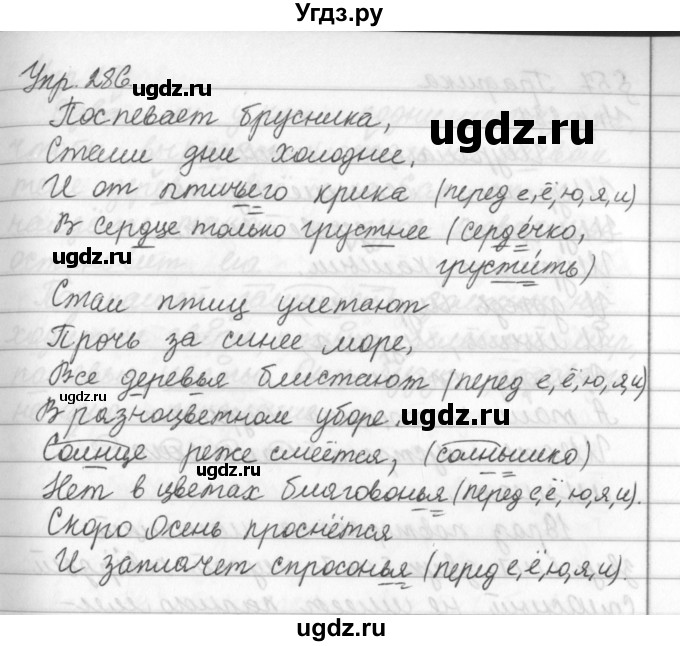 Угдз.ру
Упр. 286
Поспевает брусника,
Стали дни холоднее,
И от птичьего крика (перед е, ё, ю, я, и)
В сердце только грустнее (сердечко,
грустить)
Стаи птиц улетают
Прочь за синее море,
Все деревья блистают (перед е, ё, ю, я, и)
В разноцветном уборе.
Солнце реже смеётся, (солнышко)
Нет в цветах благовонья (перед е, ё, ю, я, и).
Скоро Осень проснётся
И заплачет спросонья (перед е, ё, ю, я, и).
ugdz.ru
ugdz.ru
ugdz.ru
ugdz.ru
ugdz.ru
ugdz.ru
ugdz.ru